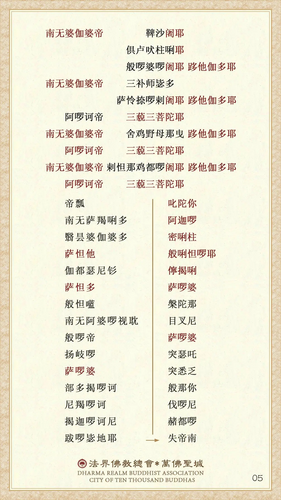 南无婆伽婆帝 鞞沙阇耶
俱卢吠柱唎耶
般啰婆啰阇耶 跢他伽多耶
南无婆伽婆帝 三补师毖多
萨怜捺啰剌阇耶
阿啰诃帝 三藐三菩陀耶
南无婆伽婆帝 舍鸡野母那曳 跢他伽多耶
阿啰诃帝 三藐三菩陀耶
南无婆伽婆帝 剌怛那鸡都啰阇耶 跢他伽多耶
阿啰诃帝 三藐三菩陀耶
帝瓢
南无萨羯唎多
翳昙婆伽婆多
萨怛他
伽都瑟尼钐
萨怛多
般怛嚂
南无阿婆啰视耽
般啰帝
扬岐啰
萨啰婆
部多揭啰诃
尼羯啰诃
羯迦啰诃尼
跋啰毖地耶
叱陀你
阿迦啰
密唎柱
般唎怛啰耶
儜揭唎
萨啰婆
槃陀那
目叉尼
萨啰婆
突瑟吒
突悉乏
般那你
伐啰尼
赭都啰
失帝南
法界佛教總會•萬佛聖城
DHARMA REALM BUDDHIST ASSOCIATION
CITY OF TEN THOUSAND BUDDHAS
05